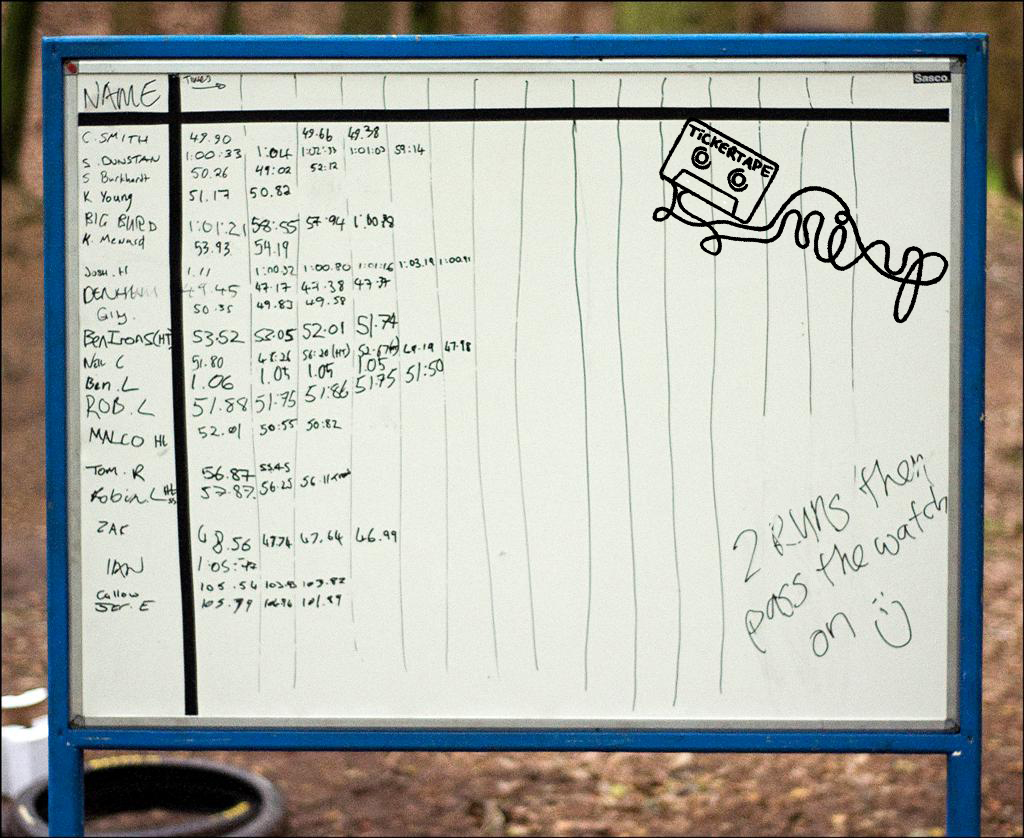 NAME Times Sasco
C. SMITH 49.90 49.66 49.38
S. DUNSTAN 1:00:33 1:04 1:01:03 59:14
S Burkhardt 50.26 49:02 52:12
K Young 51.17 50.82
BIG BURD 1:01:21 58:55 57.94
K. Menard 53.93 54.19
Josh. H 1.11 1:00.80 1:01:16 1:03.19
DENHAM 47.17 47.38 47.37
Giy. 50.35 49.83 49.58
Ben Irons (HT) 53.52 53.05 52.01 51.74
Nat C 51.80 48.26 56:20 (HT) 49.19 47.98
Ben. L 1.06 1.05 1.05 1.05
ROB. L 51.88 51.75 51.86 51.75 51:50
MALCO Ht 52.01 50:55 50:82
Tom. R 56.87 55.45
Robin. L 57.87 56.25 56.11
ZAK 48.56 47.74 47.64 46.99
IAN 1:05:
Callow 105.54 103.82
Ser. E 105.79 101.89
TICKERTAPE
2 RUNS then
pass the watch
on